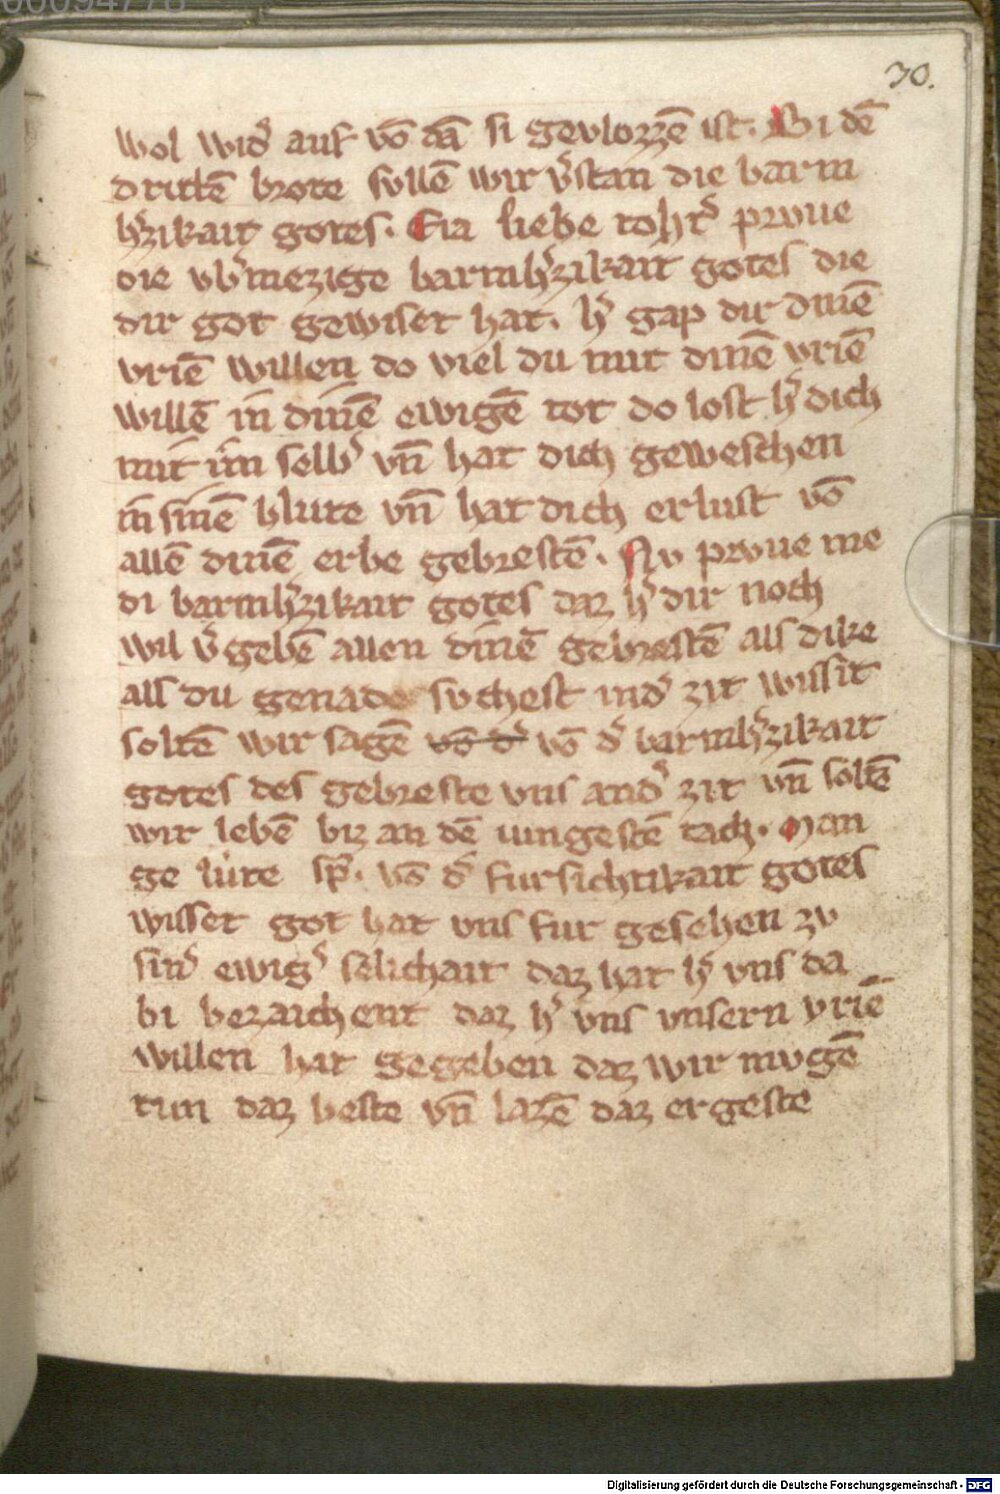 30.
wol wid͛ auf vō dā si gevlozzē ist. Bi dē
drittē brote svllē wir v͛stan die barm
h͛zikait gotes. Eia liebe toht͛ prvue
die vb͛mezige barmh͛zikait gotes die
dir got gewiset hat. h͛ gap dir dinē
vriē willen do viel du mit dinē vriē
willē in dinē ewigē tot do lost h͛ dich
mit im selb͛ vn̄ hat dich geweschen
in sinē blute vn̄ hat dich erlust vō
allē dinē erbe gebrestē. Nv prvue me
di barmh͛zikait gotes daz h͛ dir noch
wil v͛gebē allen dinē gebrestē als dike
als du genade svchest ind͛ zit wissit
soltē wir sagē vō d͛ vō d͛ barmh͛zikait
gotes des gebreste vns and͛ zit vn̄ soltē
wir lebē biz an dē iungestē tach. Man
ge lute sp̄. vō d͛ fursichtikait gotes
wisset got hat vns fur gesehen zv
sin͛ ewig͛ selichait daz hat h͛ vns da
bi bezaichent daz h͛ vns vnsern vriē
willen hat gegeben daz wir mvgē
tun daz beste vn̄ lazē daz ergeste
Digitalisierung gefördert durch die Deutsche Forschungsgemeinschaft - DFG